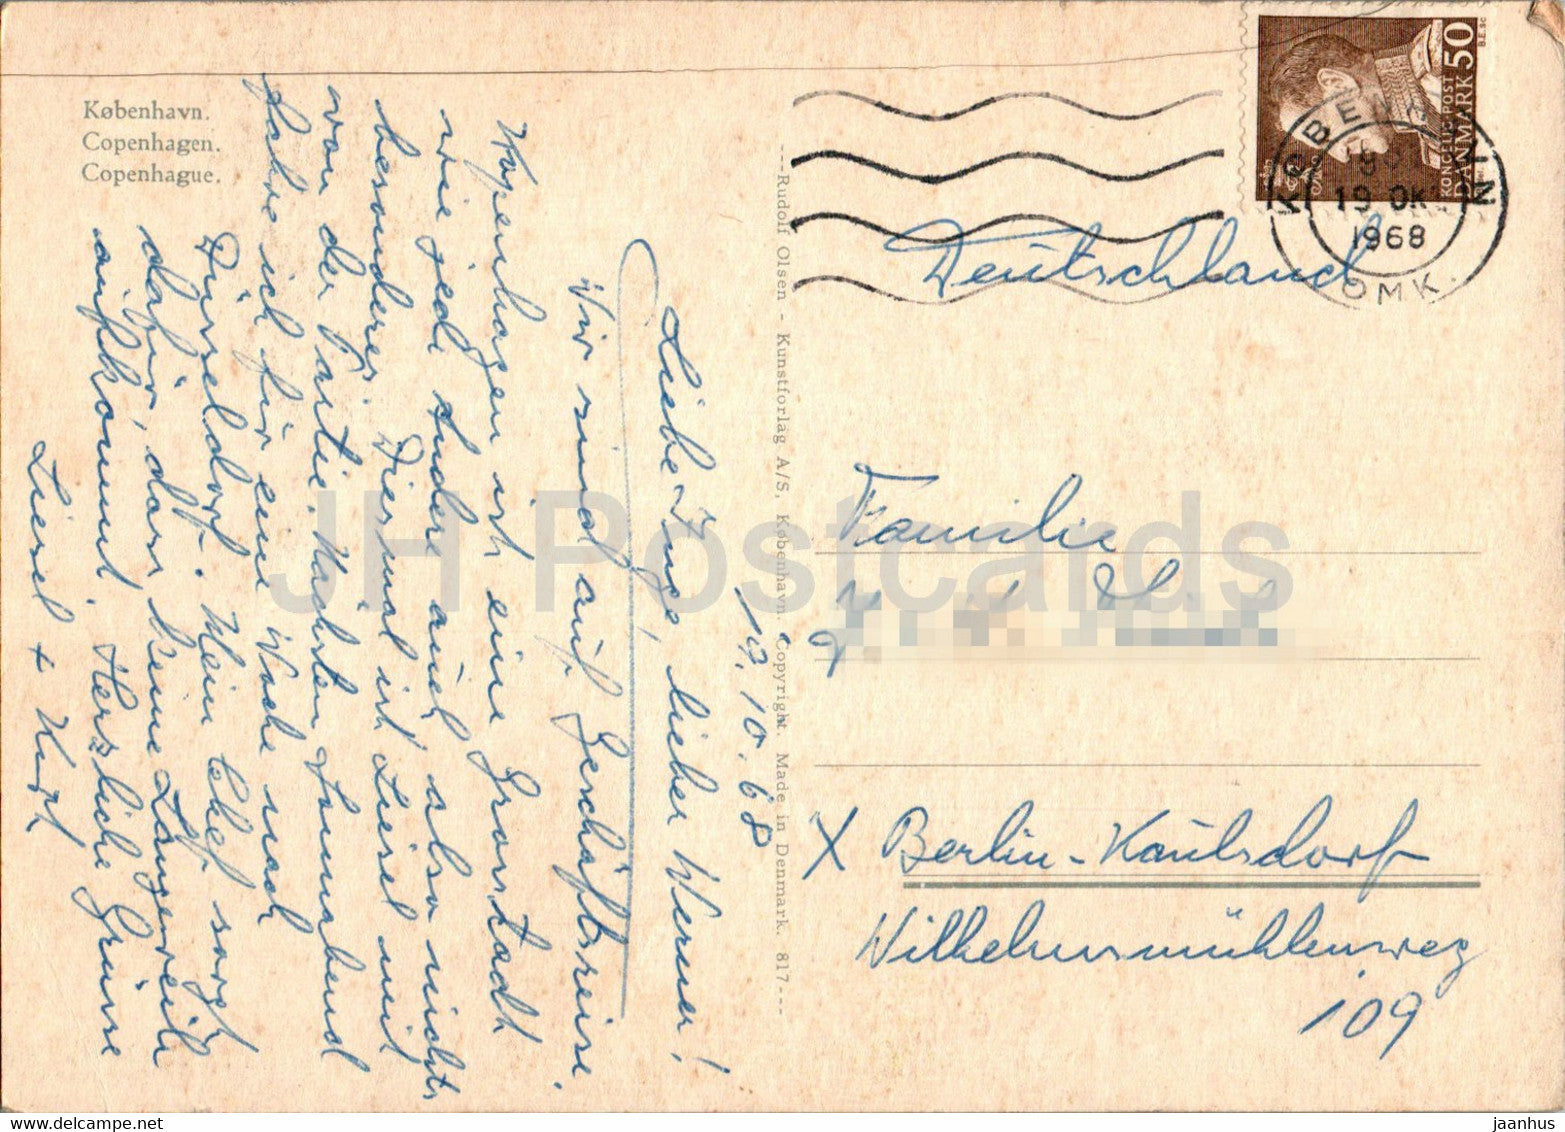 København.
Copenhagen.
Copenhague.
19.10.68
Liebe Inge, lieber Werner!
Wir sind auf Geschäftsreise.
Kopenhagen ist eine Grosstadt
wie jede Andere auch also nichts
besonderes. Diesmal ist Liesel mit
von der Partie. Nächsten Sonnabend
fahre ich für eine Woche nach
Düsseldorf. Mein Chef sorgt
dafür, dass keine Langeweile
aufkommt. Herzliche Grüsse
Liesel + Kurt
---Rudolf Olsen - Kunstforlag A/S, København. Copyright. Made in Denmark. 817---
KONGELIG POST
DANMARK 50
B.E.sc
KØBENHAVN
19 OK
1968
OMK.
Deutschland
Familie
X Berlin-Kaulsdorf
Wilhelmsmühlenweg
109
JH Postcards
www.delcampe.net
jaanhus